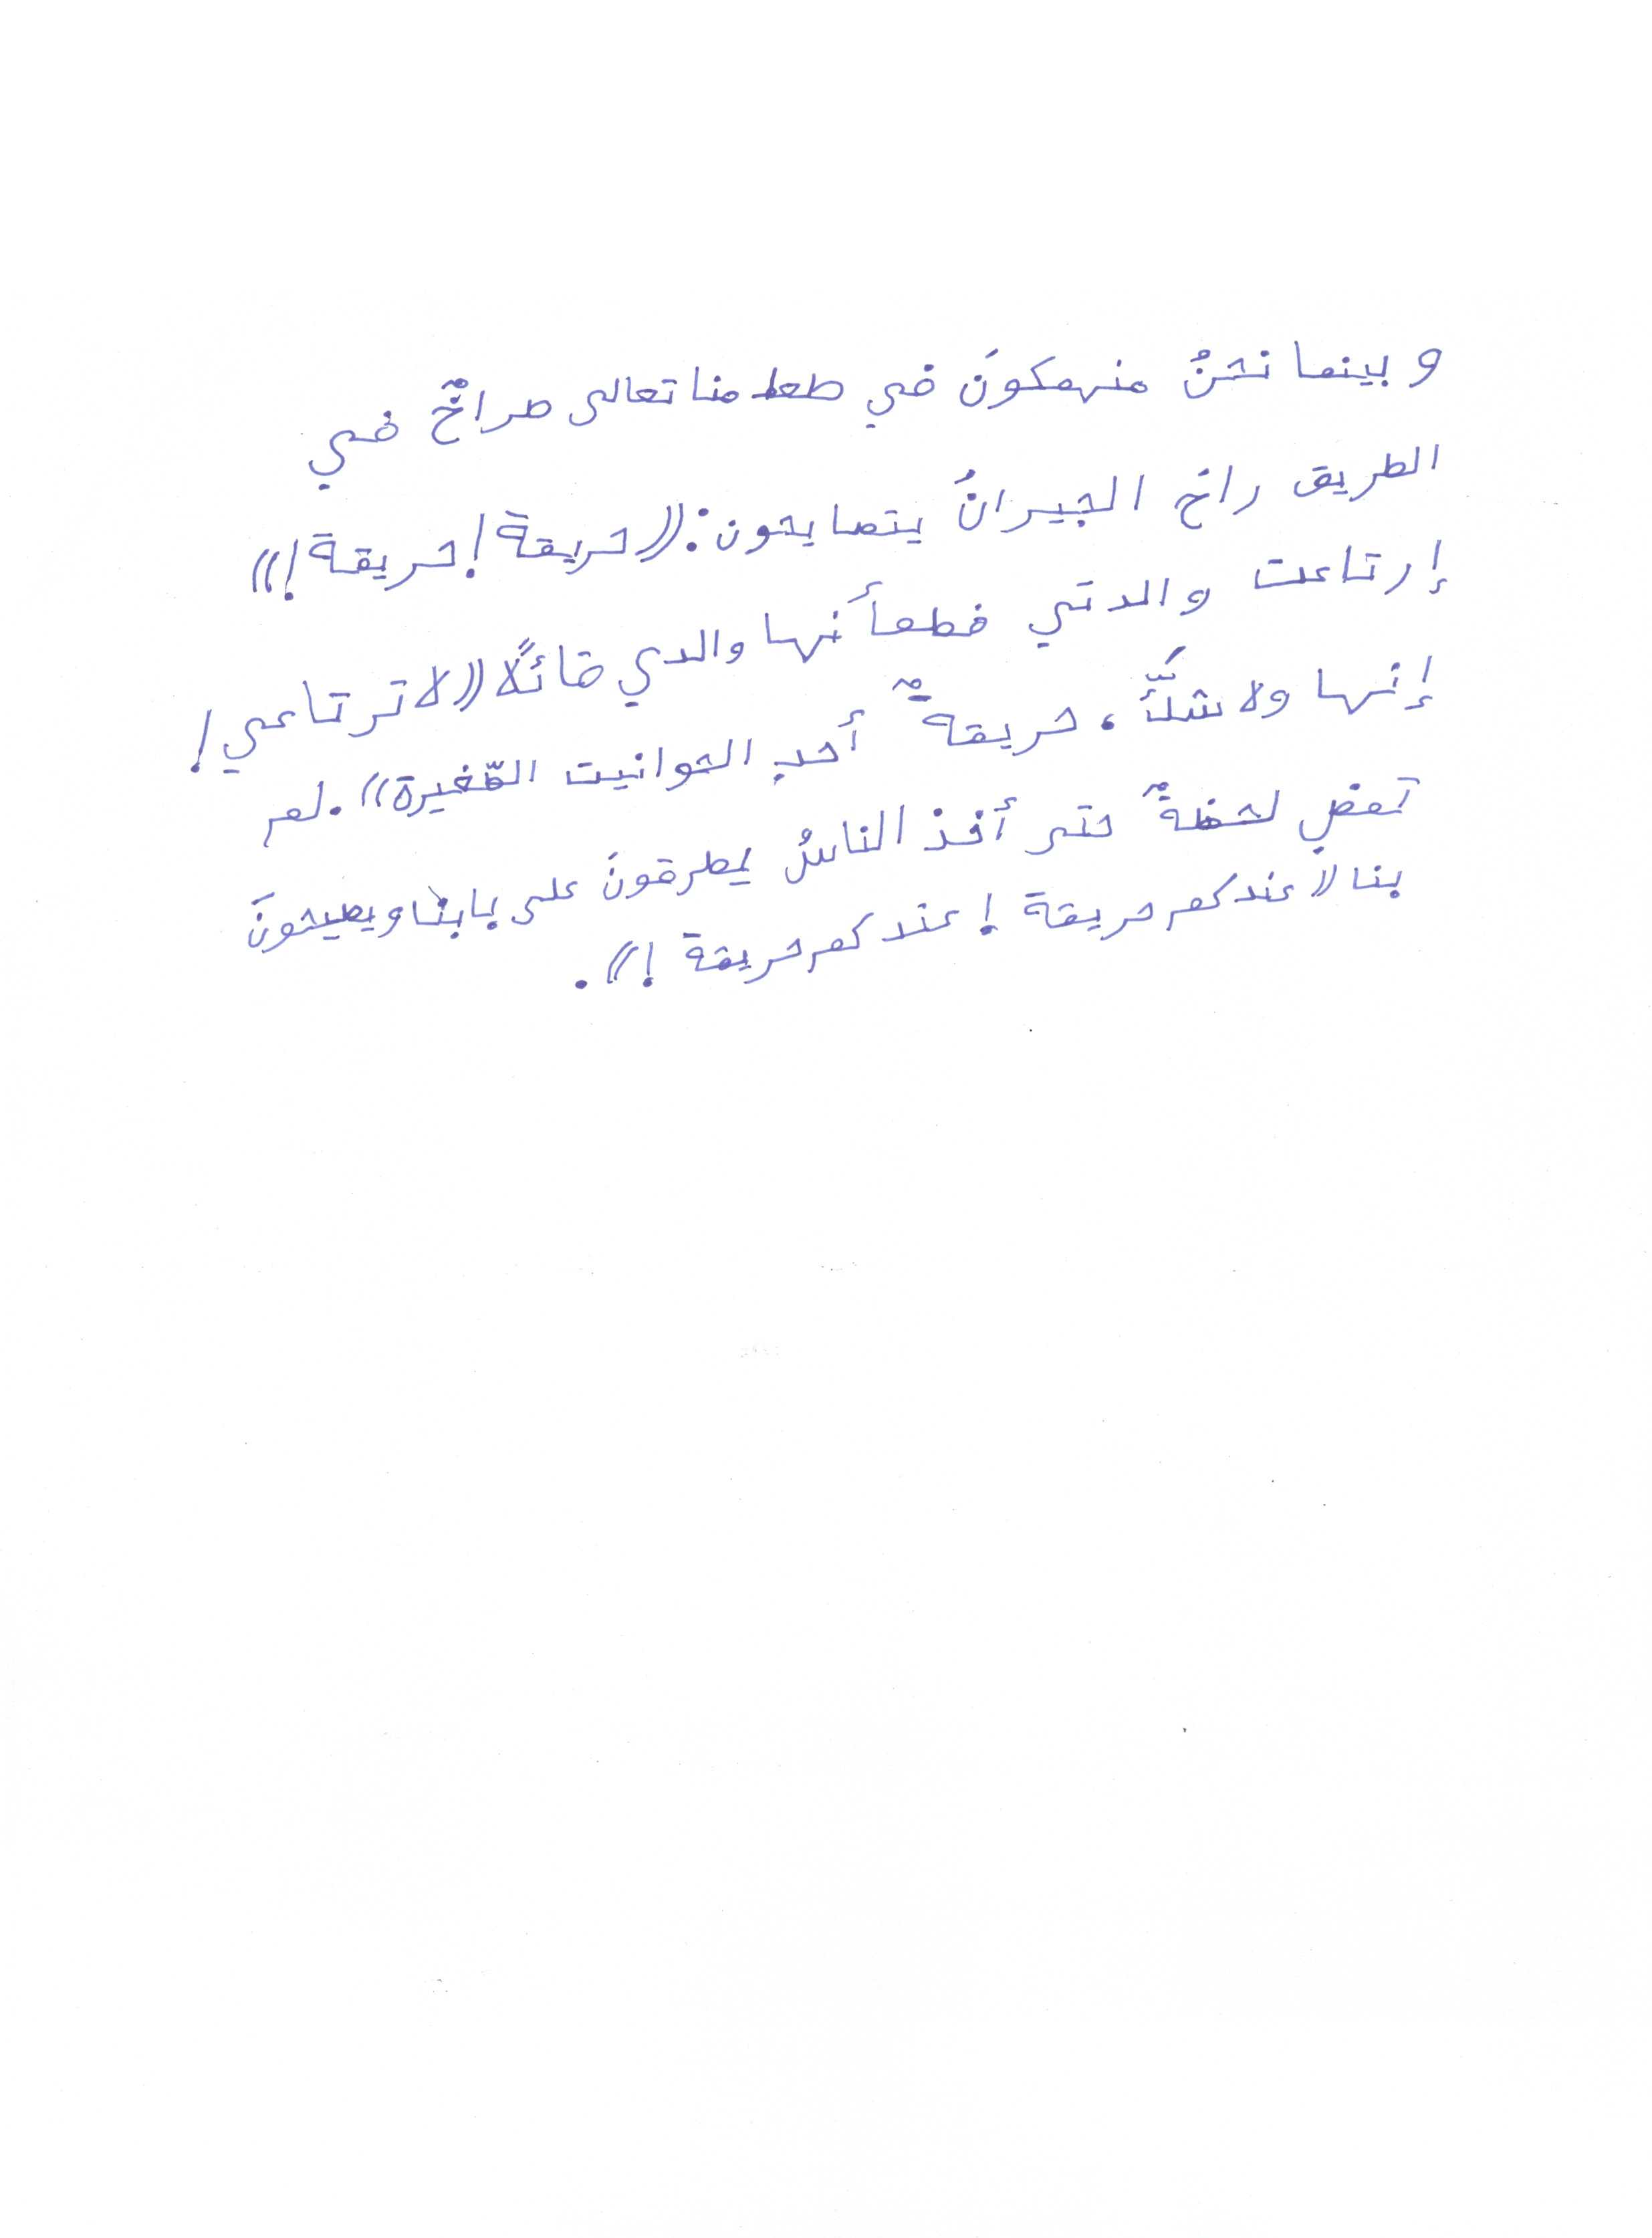 وبينما نحنُ منهمكونَ في طعامنا تعالى صراخٌ في
الطريق راحَ الجيرانُ يتصايحون: ((حريقة! حريقة!))
إرتاعت والدتي فطمأنها والدي قائلًا ((لا ترتاعي!
إنها ولا شكَّ، حريقةٌ أحدِ الحوانيت الصّغيرة)). لم
تمضِ لحظةٌ حتى أخذ الناسُ يطرقونَ على بابنا ويصيحونَ
بنا ((عندكم حريقة! عندكم حريقة!)).